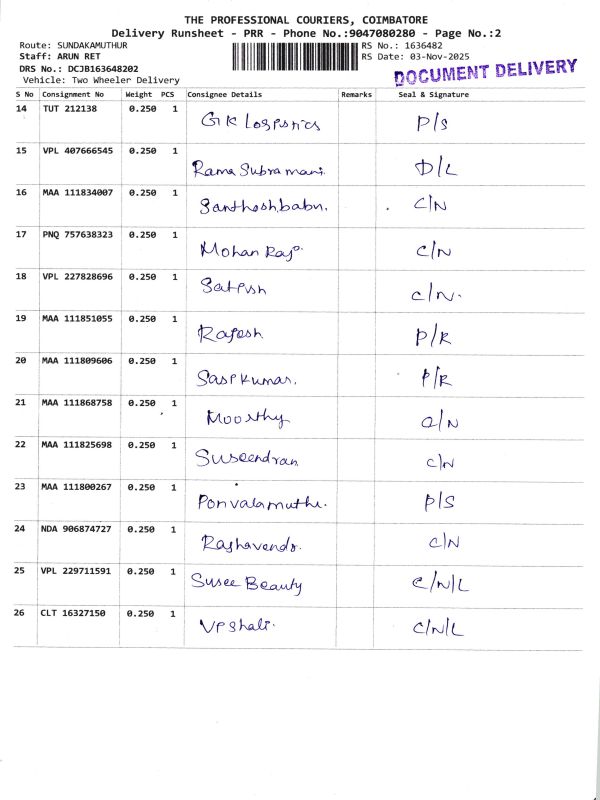 THE PROFESSIONAL COURIERS, COIMBATORE
Delivery Runsheet - PRR - Phone No.:9047080280 - Page No.:2
Route: SUNDAKAMUTHUR
RS No.: 1636482
Staff: ARUN RET
RS Date: 03-Nov-2025
DRS No.: DCJB163648202
DOCUMENT DELIVERY
Vehicle: Two Wheeler Delivery
S No Consignment No Weight PCS Consignee Details Remarks Seal & Signature
14 TUT 212138 0.250 1 GK Logistics P/S
15 VPL 407666545 0.250 1 Rama Subramani. D/L
16 MAA 111834007 0.250 1 Santhoshbabu. C/N
17 PNQ 757638323 0.250 1 Mohan Raj. C/N
18 VPL 227828696 0.250 1 Satish C/N.
19 MAA 111851055 0.250 1 Rajesh P/R
20 MAA 111809606 0.250 1 Sasikumar. P/R
21 MAA 111868758 0.250 1 Moorthy
22 MAA 111825698 0.250 1 Suseendran C/N
23 MAA 111800267 0.250 1 Ponvalamuthu. P/S
24 NDA 906874727 0.250 1 Raghavendr. C/N
25 VPL 229711591 0.250 1 Susee Beauty C/N/L
26 CLT 16327150 0.250 1 C/N/L